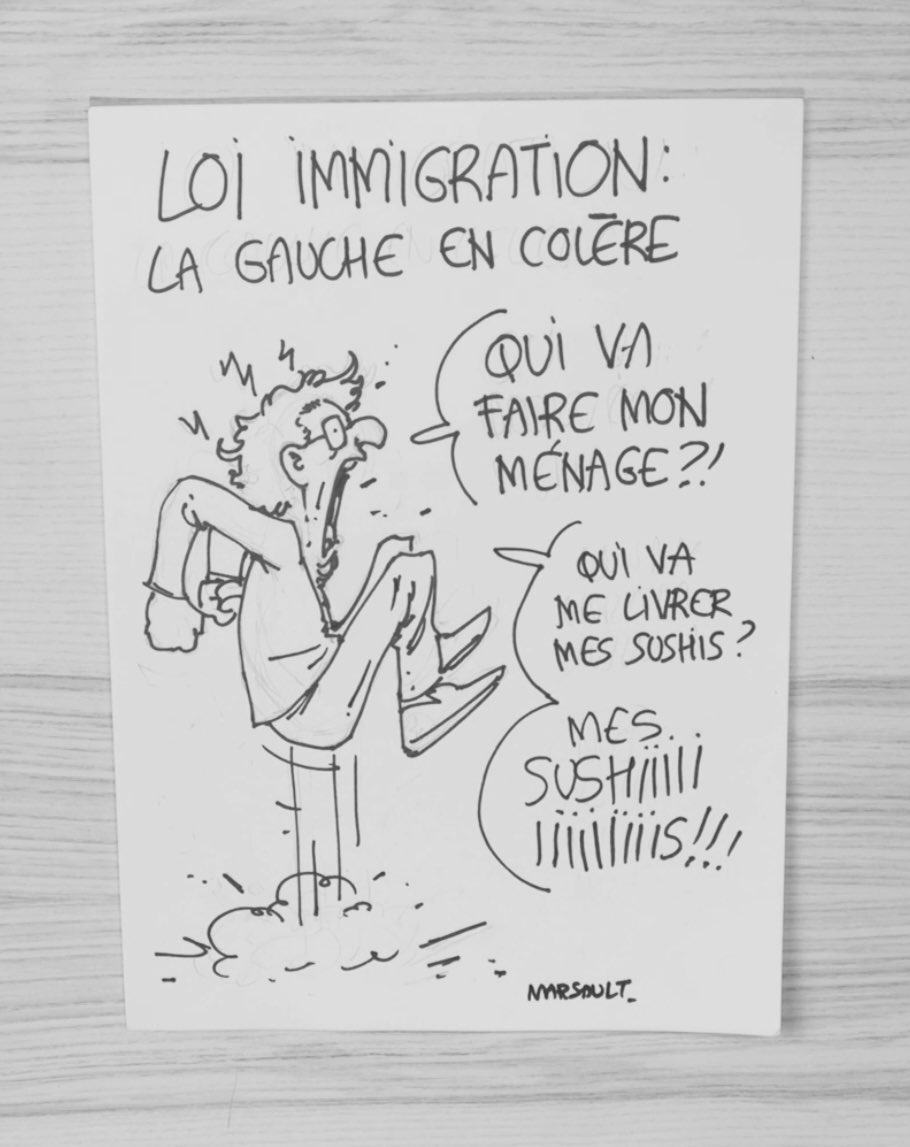 LOI IMMIGRATION:
LA GAUCHE EN COLÈRE
QUI VA
FAIRE MON
MÉNAGE?!
QUI VA
ME LIVRER
MES SUSHIS?
MES..
SUSHIIIII
IIIIIIIIIIS!!!
MARSAULT_